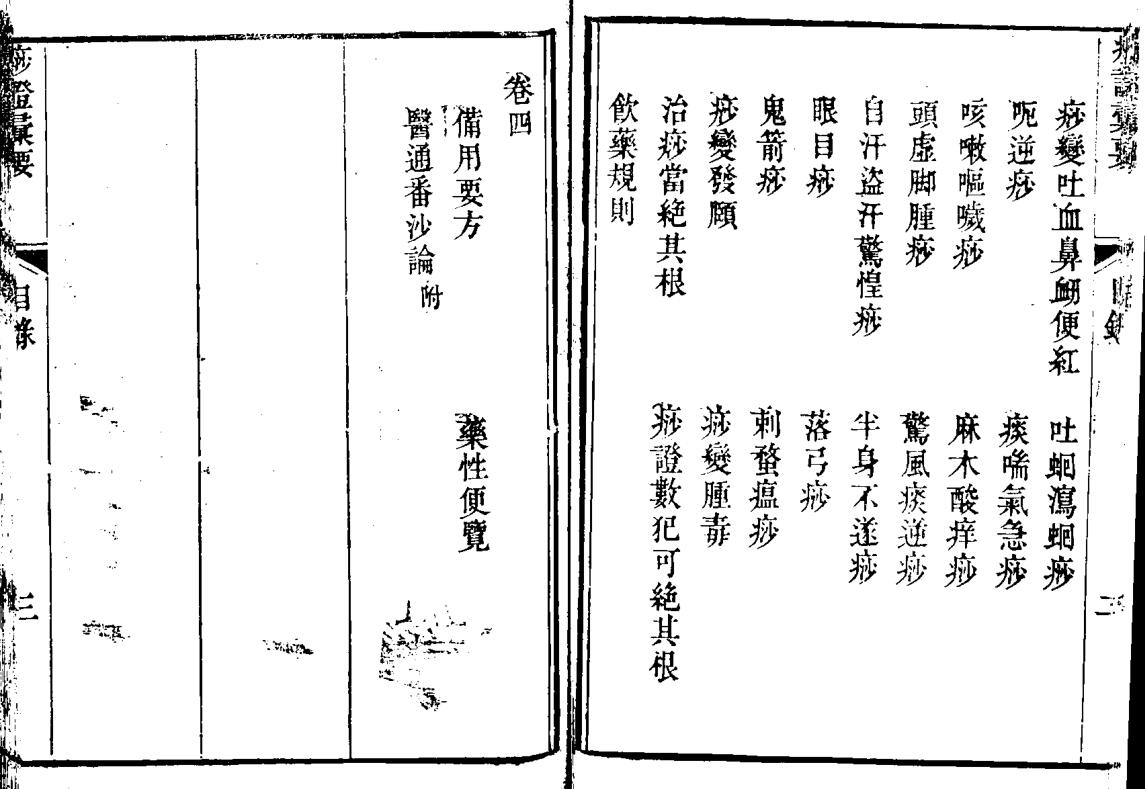 痧證彙要
目錄
二
痧變吐血鼻衂便紅
吐蛔瀉蛔痧
呃逆痧
痰喘氣急痧
咳嗽嘔噦痧
麻木酸痒痧
頭虛脚腫痧
驚風痰逆痧
自汗盜汗驚惶痧
半身不遂痧
眼目痧
落弓痧
鬼箭痧
刺蝥瘟痧
痧變發頥
痧變腫毒
治痧當絶其根
痧證數犯可絶其根
飲藥規則
卷四
備用要方
藥性便覽
醫通番沙論附
痧證彙要
目錄
三